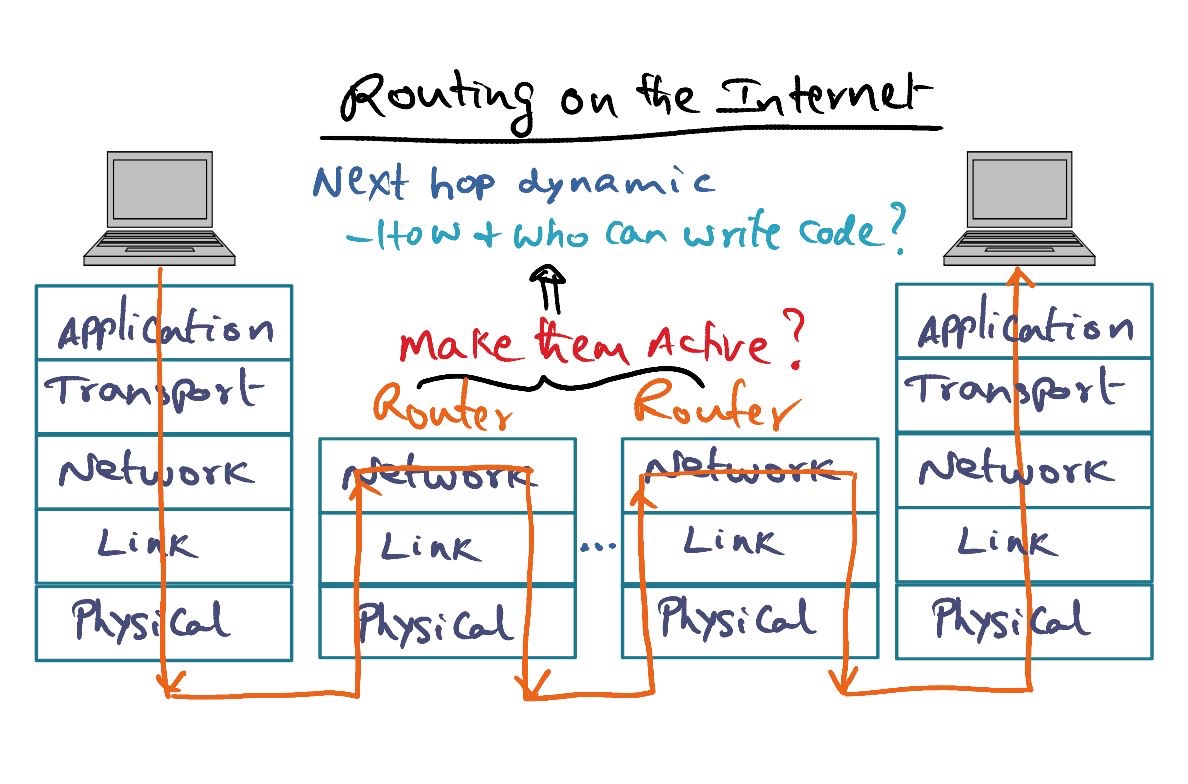 Routing on the Internet
Next hop dynamic
- How + who can write code?
Make them Active?
Router
Router
Application
Transport
Network
Link
Physical
Network
Link
Physical
...
Network
Link
Physical
Application
Transport
Network
Link
Physical